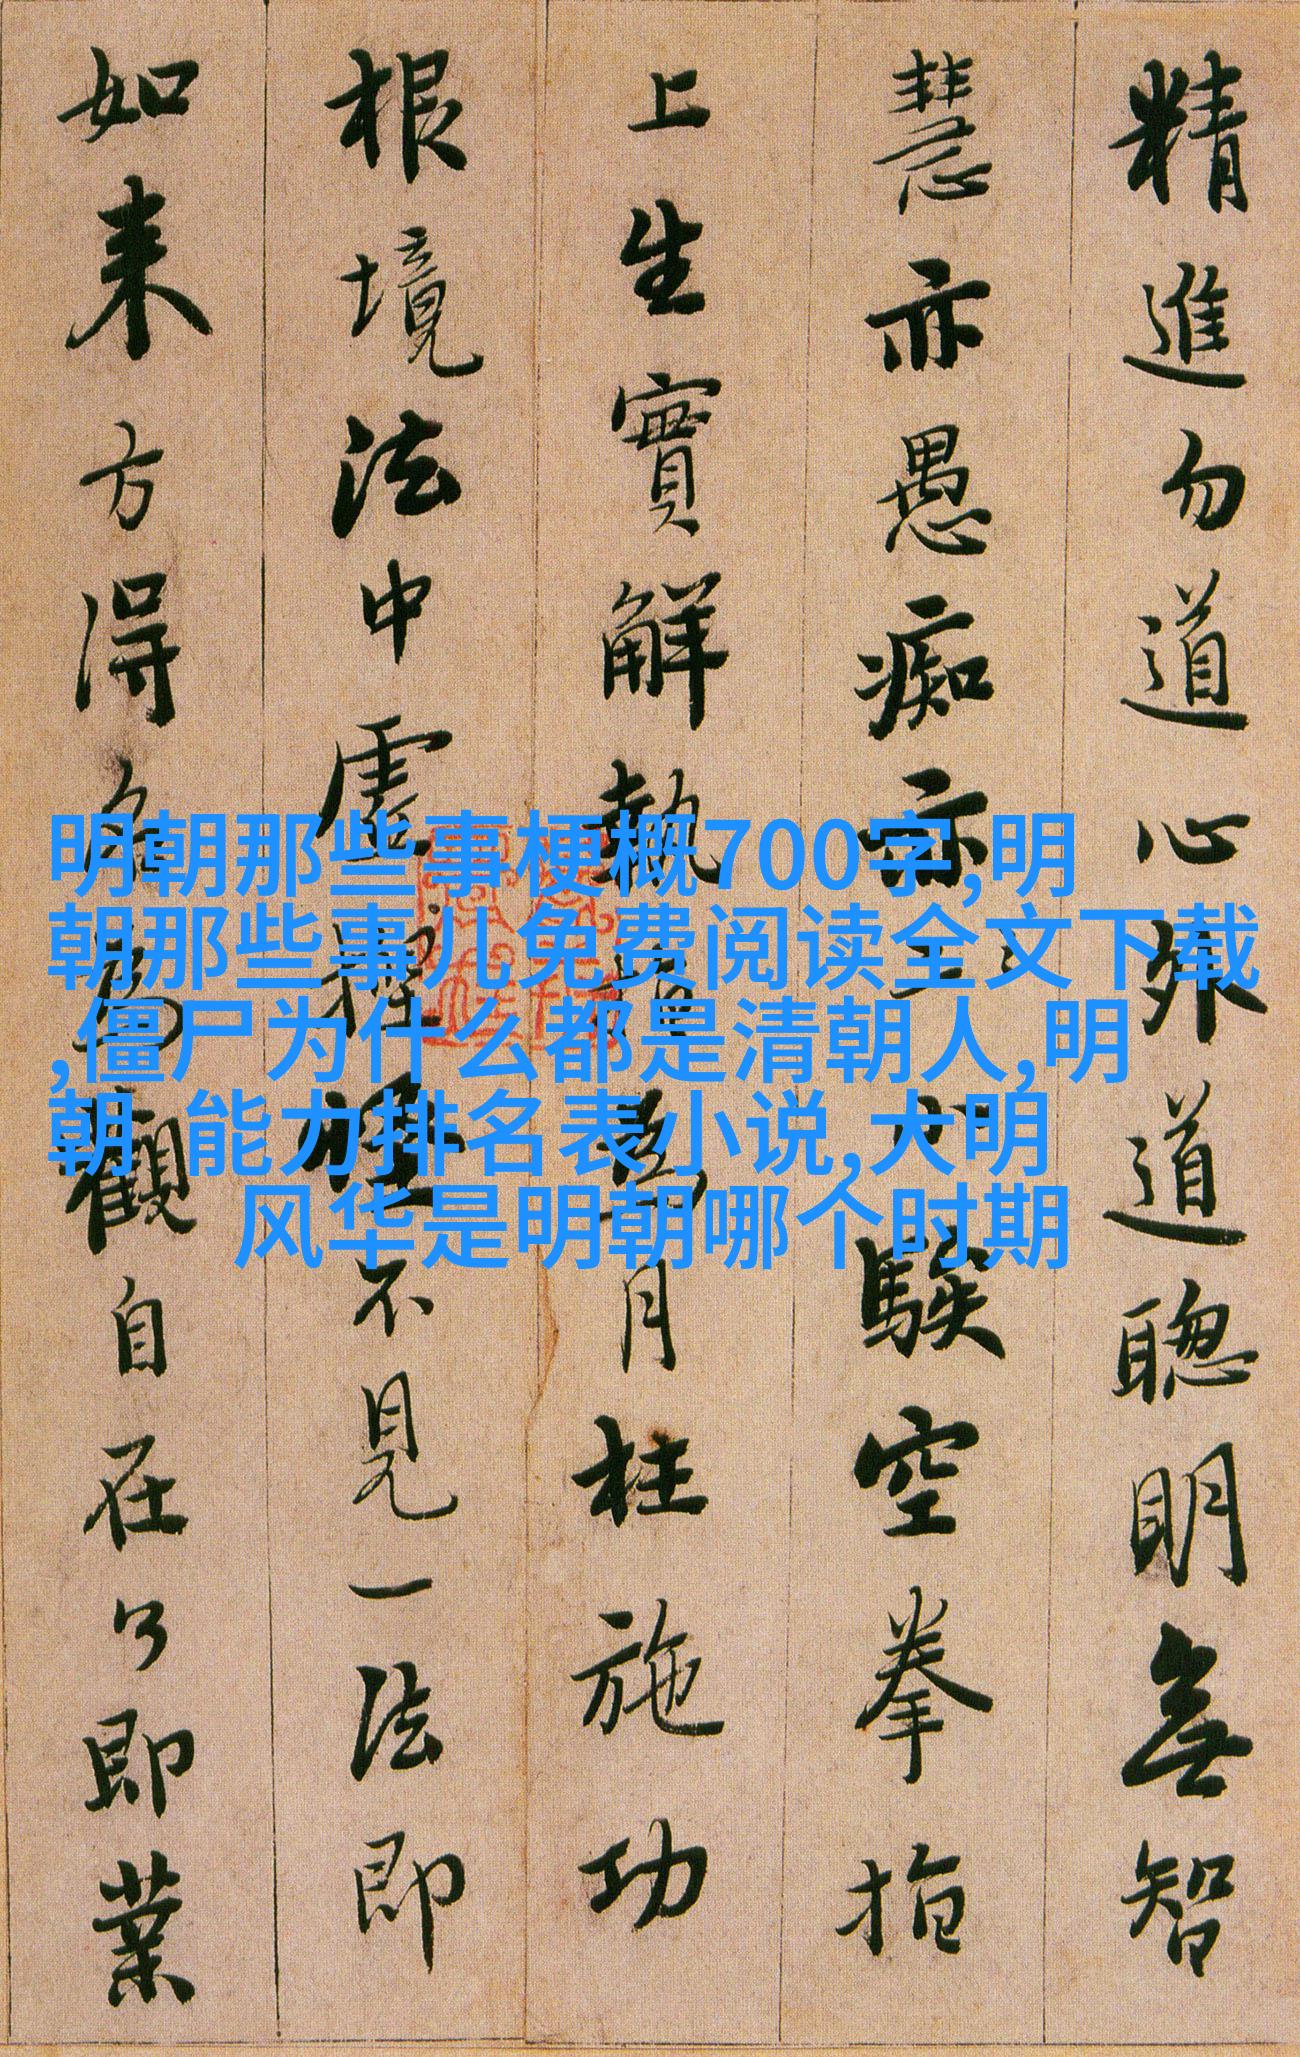 精進勿道心外道聰明無智
慧亦愚癡亦小騃空拳指
上生實解執指為月枉施功
根境法中虛捏怪不見一法即
如来方得名為觀自在了即業
明朝那些事梗概700字,明
朝那些事儿免费阅读全文下载
,僵尸为什么都是清朝人,明
朝 能力排名表小说,大明
风华是明朝哪个时期